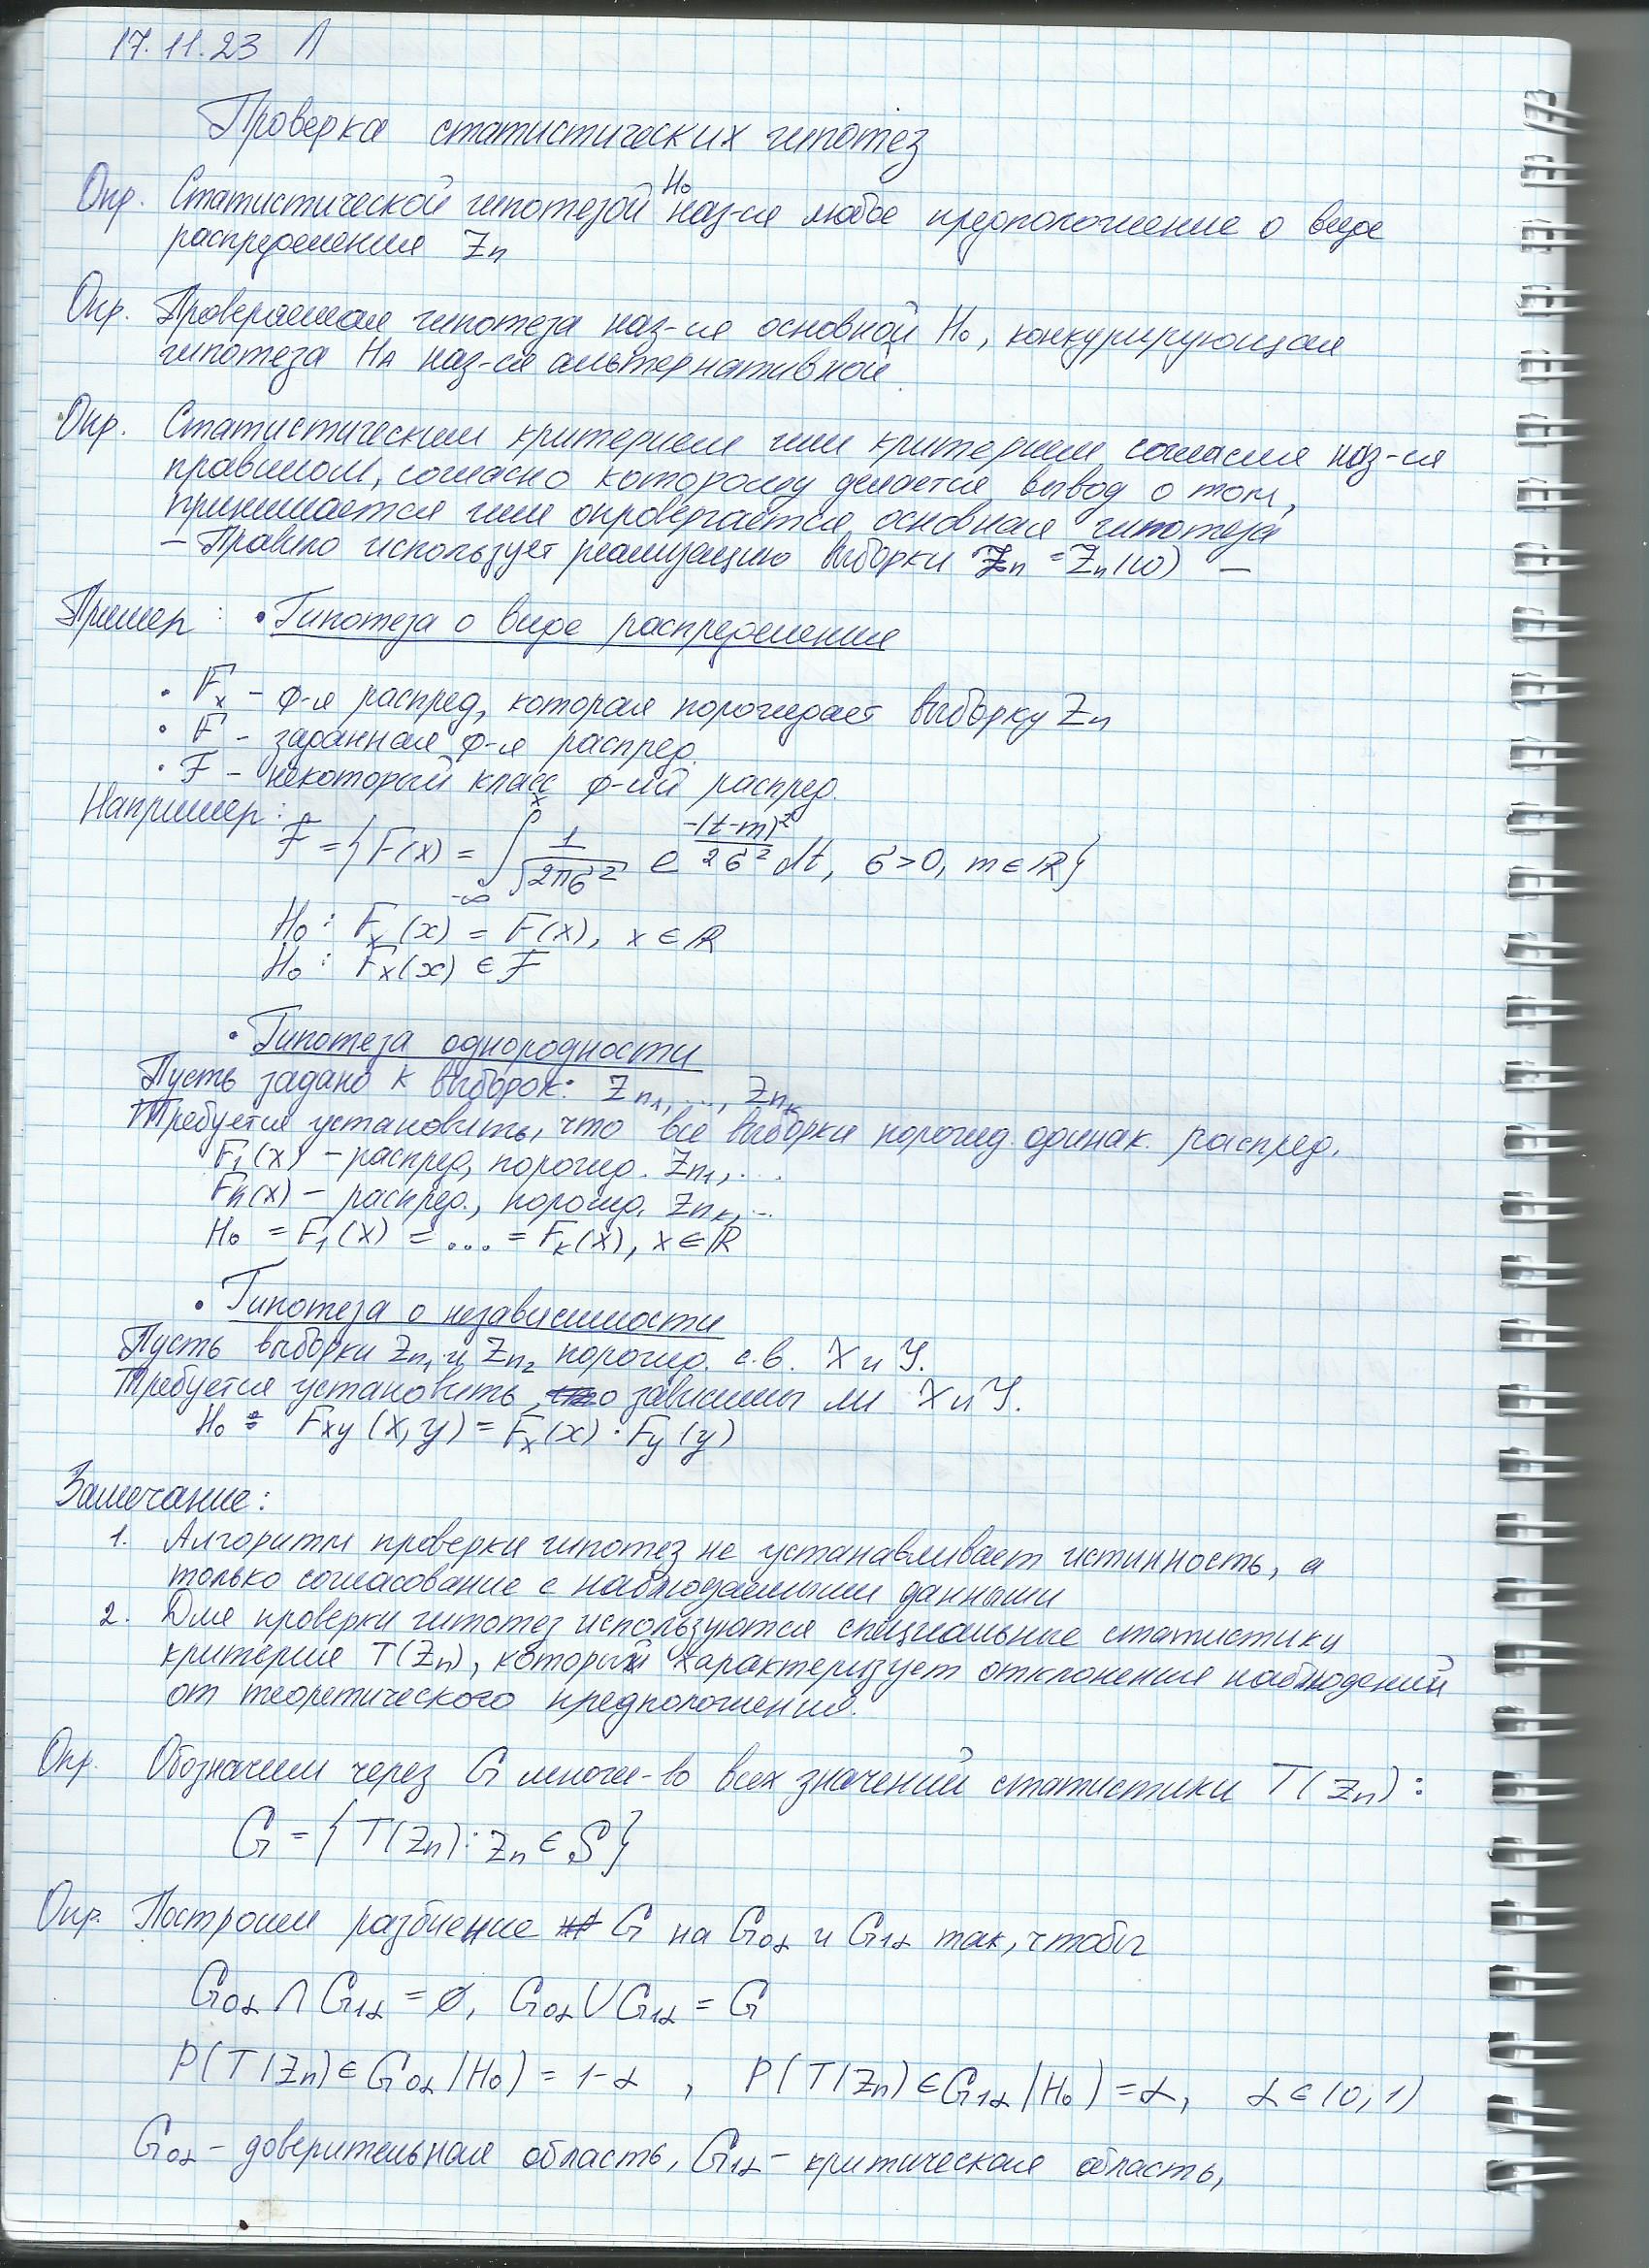 17.11.23 Л
Проверка статистических гипотез
H₀
Опр. Статистической гипотезой наз-ся любое предположение о виде
распределения Zn
Опр. Проверяемая гипотеза наз-ся основной H₀, конкурирующая
гипотеза HA наз-ся альтернативной.
Опр. Статистическим критерием или критерием согласия наз-ся
правилом, согласно которому делается вывод о том,
принимается или опровергается основная гипотеза
– Правило использует реализацию выборки Zn = Zn(ω) –
Пример: • Гипотеза о виде распределения
• Fx – ф-я распред, которая порождает выборку Zn
• F – заранная ф-я распред.
• F – некоторый класс ф-ий распред.
Например:
F = {F(x) = ∫_{-∞}^{x} 1/√(2πσ²) e^{-(t-m)²/2σ²} dt, σ>0, m∈ℝ}
H₀: Fx(x) = F(x), x∈ℝ
H₀: Fx(x) ∈ F
• Гипотеза однородности
Пусть задано k выборок: Zn₁, ..., Znk
Требуется установить, что все выборки порожд. одинак. распред.
F₁(x) – распред, порожд. Zn₁, ...
Fk(x) – распред., порожд. Znk, ...
H₀ = F₁(x) = ... = Fk(x), x∈ℝ
• Гипотеза о независимости
Пусть выборки Zn₁ и Zn₂ порожд. с.в. X и Y.
Требуется установить, зависимы ли X и Y.
H₀: Fxy(x,y) = Fx(x)·Fy(y)
Замечание:
1. Алгоритм проверки гипотез не устанавливает истинность, а
только согласование с наблюдаемыми данными
2. Для проверки гипотез используются специальные статистики
критерия T(Zn), который характеризует отклонения наблюдений
от теоретического предположения.
Опр. Обозначим через G множ-во всех значений статистики T(Zn):
G = {T(Zn): Zn∈S}
Опр. Построим разбиение G на G₀α и G₁α так, чтобы
G₀α∩G₁α = ∅, G₀α∪G₁α = G
P(T(Zn)∈G₀α|H₀) = 1-α, P(T(Zn)∈G₁α|H₀) = α, α∈(0,1)
G₀α – доверительная область, G₁α – критическая область,